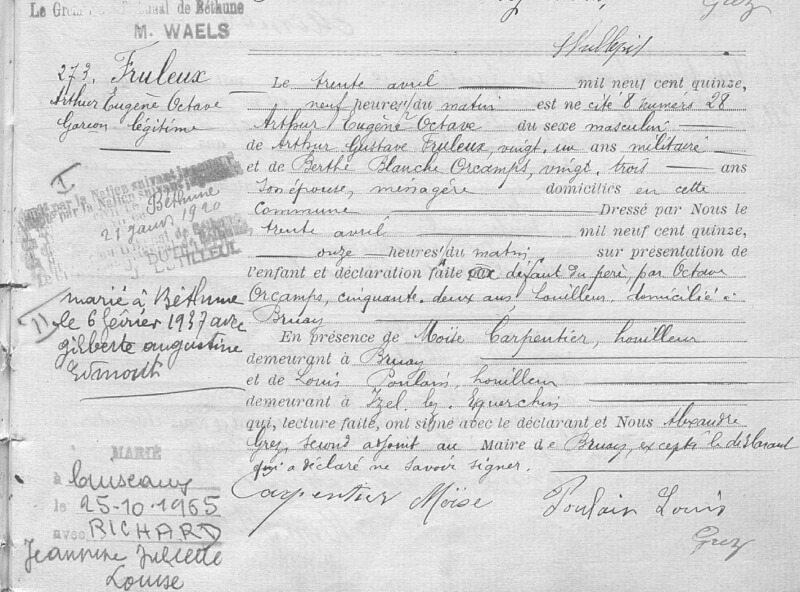 Le Gref Tribunal de Béthune
M. WAELS
Grez
273. Fruleux
Arthur Eugène Octave
Garcon légitime
I
par la Nation suivant jugement
Béthune
21 janv 1920
DUTILLEUL
II
marié à Béthune
le 6 février 1937 avec
gilberte augustine
Edmont
MARIÉ
à Cuiseaux
le 25-10-1965
avec RICHARD
Jeannine Juliette
Louise
Le trente avril mil neuf cent quinze,
neuf heures du matin est ne cité 8 numero 28
Arthur Eugène Octave du sexe masculin
de Arthur Gustave Fruleux vingt, un ans militaire
et de Berthe Blanche Orcamps, vingt, trois ans
son épouse, ménagère domiciliés en cette
Commune Dressé par Nous le
trente avril mil neuf cent quinze,
onze heures du matin, sur présentation de
l'enfant et déclaration faite par défaut du père, par Octave
Orcamps, cinquante, deux ans, houilleur, domicilié à
Bruay
En présence de Moïse Carpentier, houilleur
demeurant à Bruay
et de Louis Poulain, houilleur
demeurant à Izel lez Equerchin
qui, lecture faite, ont signé avec le déclarant et Nous Alexandre
Grez, second adjoint au Maire de Bruay, excepté le déclarant
qui a déclaré ne savoir signer.
Carpentier Moïse Poulain Louis
Grez